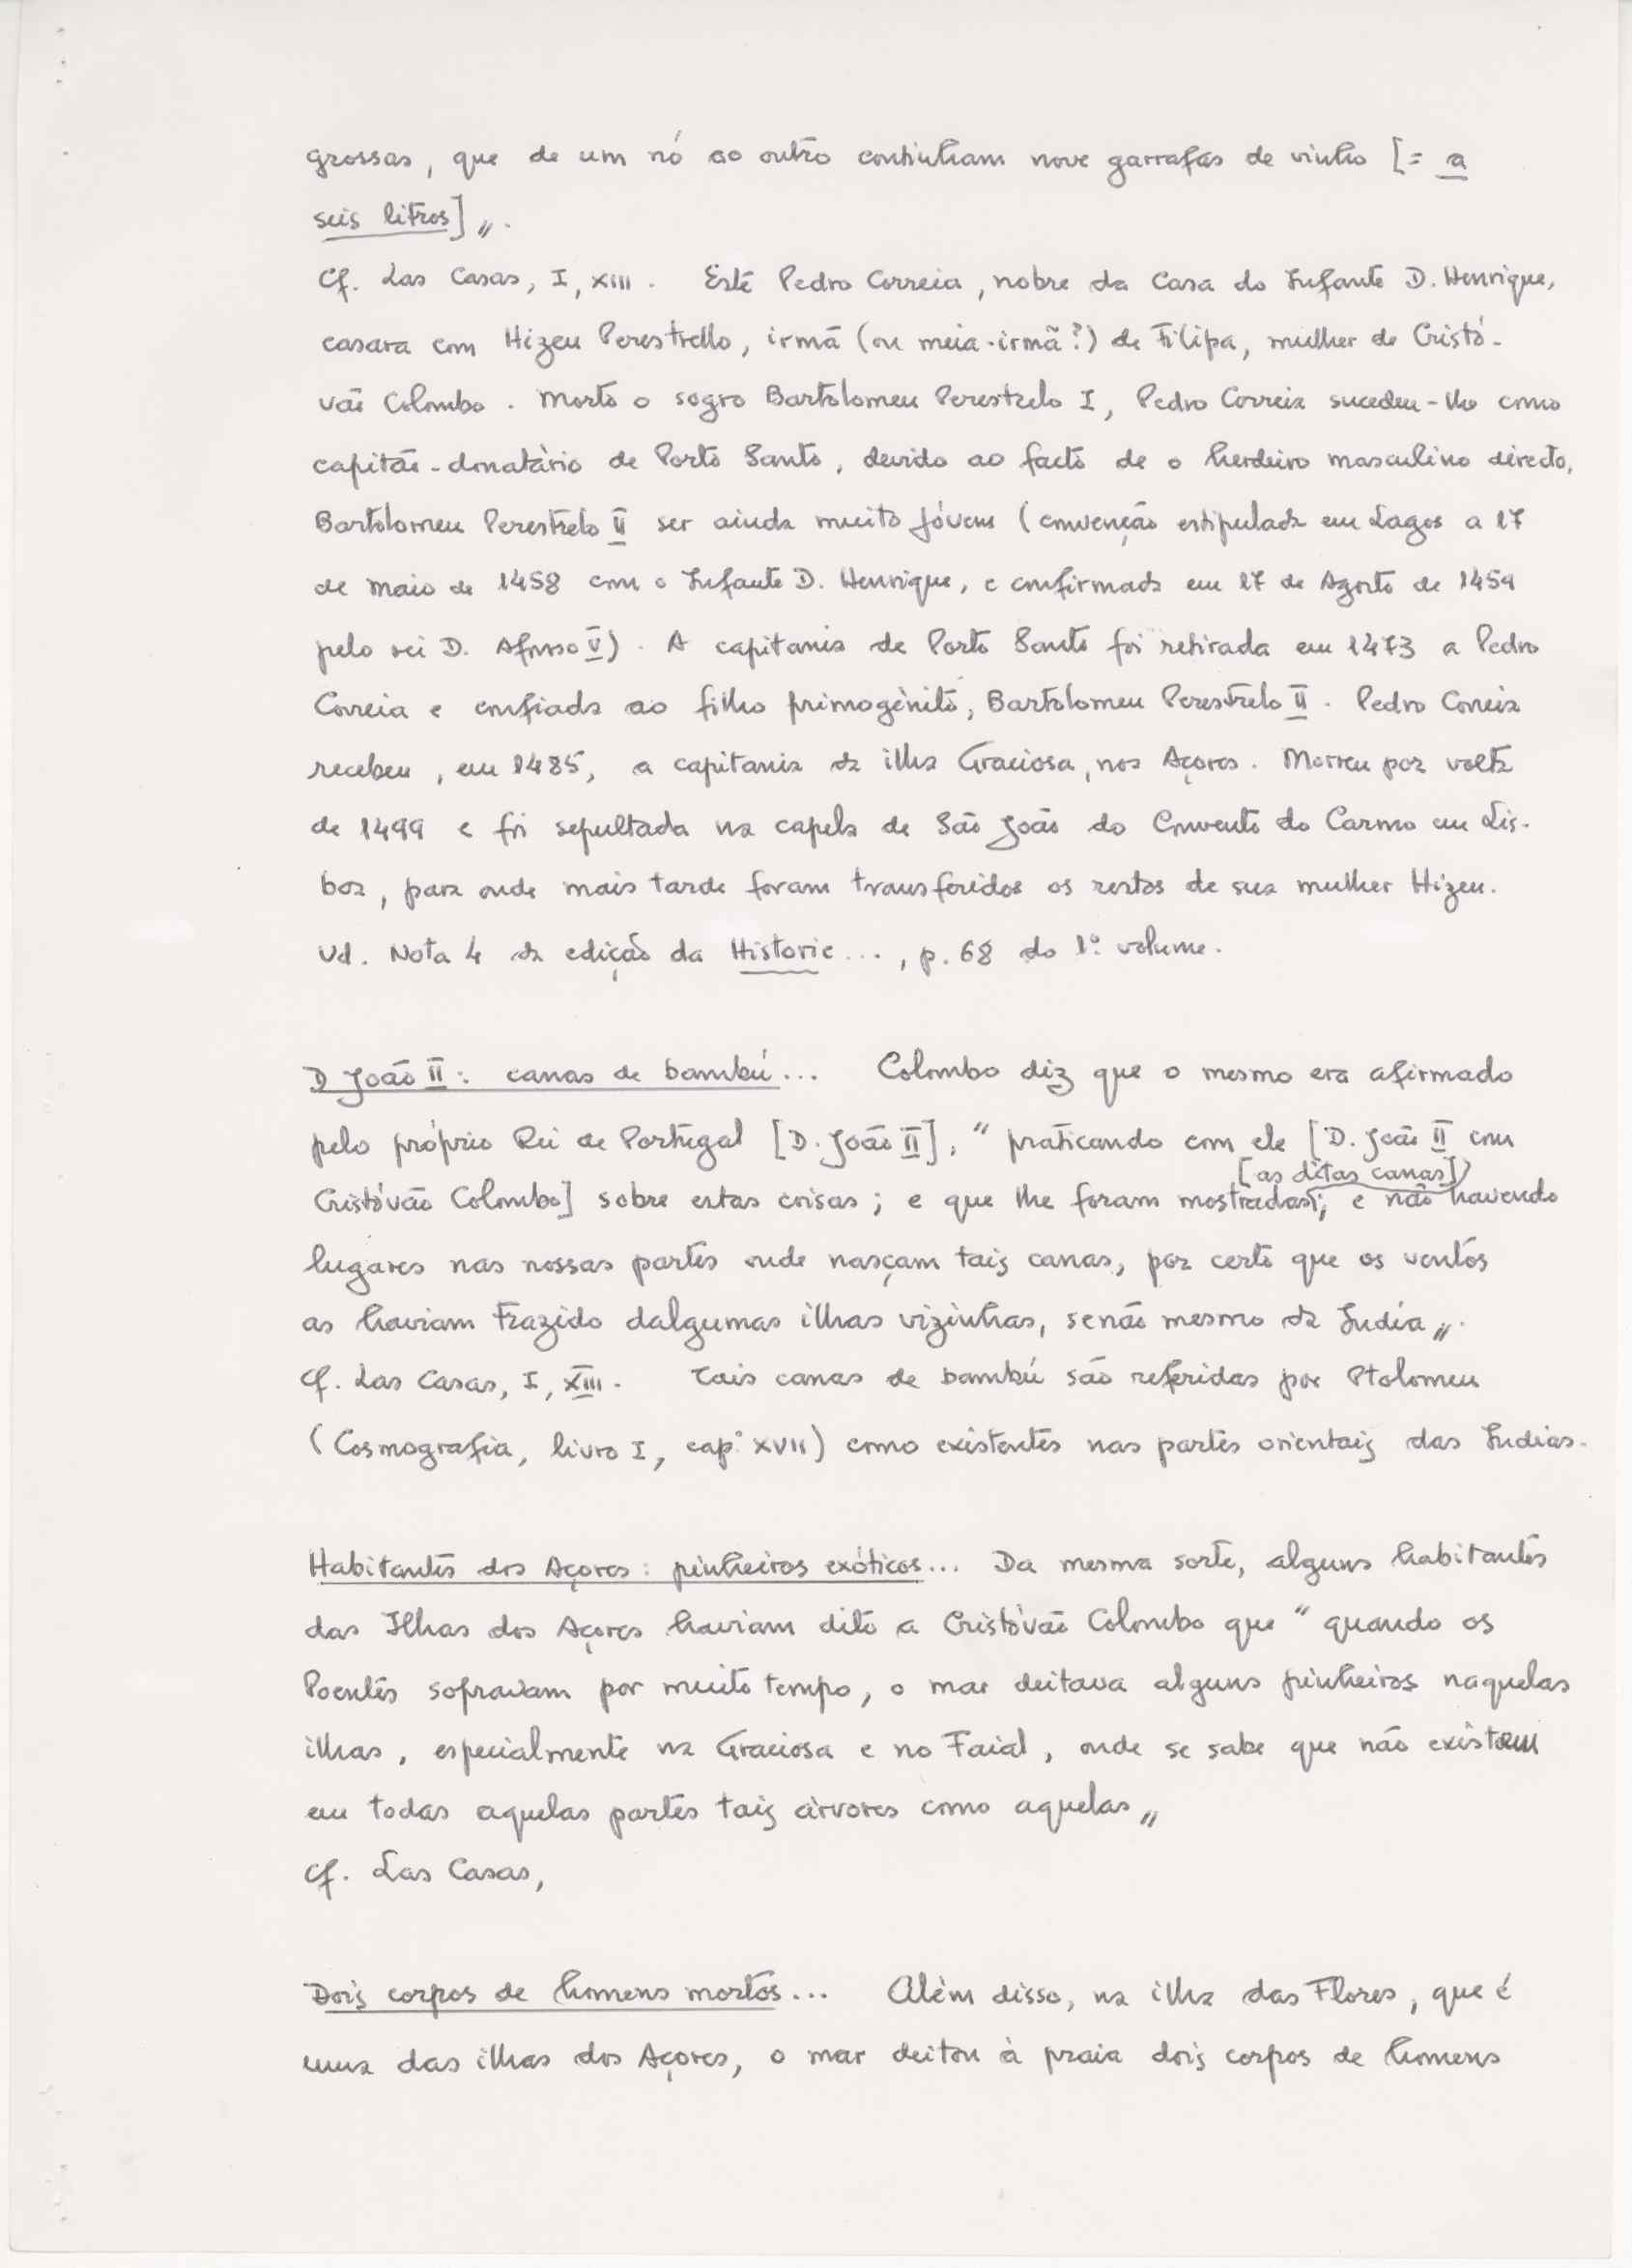 grossas, que de um nó ao outro continham nove garrafas de vinho [= a
seis litros]„.
Cf. Las Casas, I, XIII. Este Pedro Correia, nobre da Casa do Infante D. Henrique,
casara com Hizeu Perestrello, irmã (ou meia-irmã?) de Filipa, mulher de Cristó-
vão Colombo. Morto o sogro Bartolomeu Perestrelo I, Pedro Correia sucedeu-lhe como
capitão-donatàrio de Porto Santo, devido ao facto de o herdeiro masculino directo,
Bartolomeu Perestrelo II ser ainda muito jóvem (convenção estipulada em Lagos a 17
de Maio de 1458 com o Infante D. Henrique, e confirmada em 17 de Agosto de 1459
pelo rei D. Afonso V). A capitania de Porto Santo foi retirada em 1473 a Pedro
Correia e confiada ao filho primogènito, Bartolomeu Perestrelo II. Pedro Correia
recebeu, em 1485, a capitania da ilha Graciosa, nos Açores. Morreu por volta
de 1499 e foi sepultada na capela de São João do Convento do Carmo em Lis-
boa, para onde mais tarde foram transferidos os restos de sua mulher Hizeu.
Vd. Nota 4 da edição da Historie..., p. 68 do 1º. volume.
D João II: canas de bambú... Colombo diz que o mesmo era afirmado
pelo próprio Rei de Portugal [D. João II], “praticando com ele [D. João II com
[as ditas canas]
Cristóvão Colombo] sobre estas coisas; e que lhe foram mostradas; e não havendo
lugares nas nossas partes onde nasçam tais canas, por certo que os ventos
as haviam trazido dalgumas ilhas vizinhas, senão mesmo da Índia„.
Cf. Las Casas, I, XIII. Tais canas de bambú são referidas por Ptolomeu
(Cosmografia, livro I, cap.º XVII) como existentes nas partes orientais das Índias.
Habitantes dos Açores: pinheiros exóticos... Da mesma sorte, alguns habitantes
das Ilhas dos Açores haviam dito a Cristóvão Colombo que “quando os
Poentes sopravam por muito tempo, o mar deitava alguns pinheiros naquelas
ilhas, especialmente na Graciosa e no Faial, onde se sabe que não existem
em todas aquelas partes tais àrvores como aquelas„
Cf. Las Casas,
Dois corpos de homens mortos... Além disso, na ilha das Flores, que é
uma das ilhas dos Açores, o mar deitou à praia dois corpos de homens